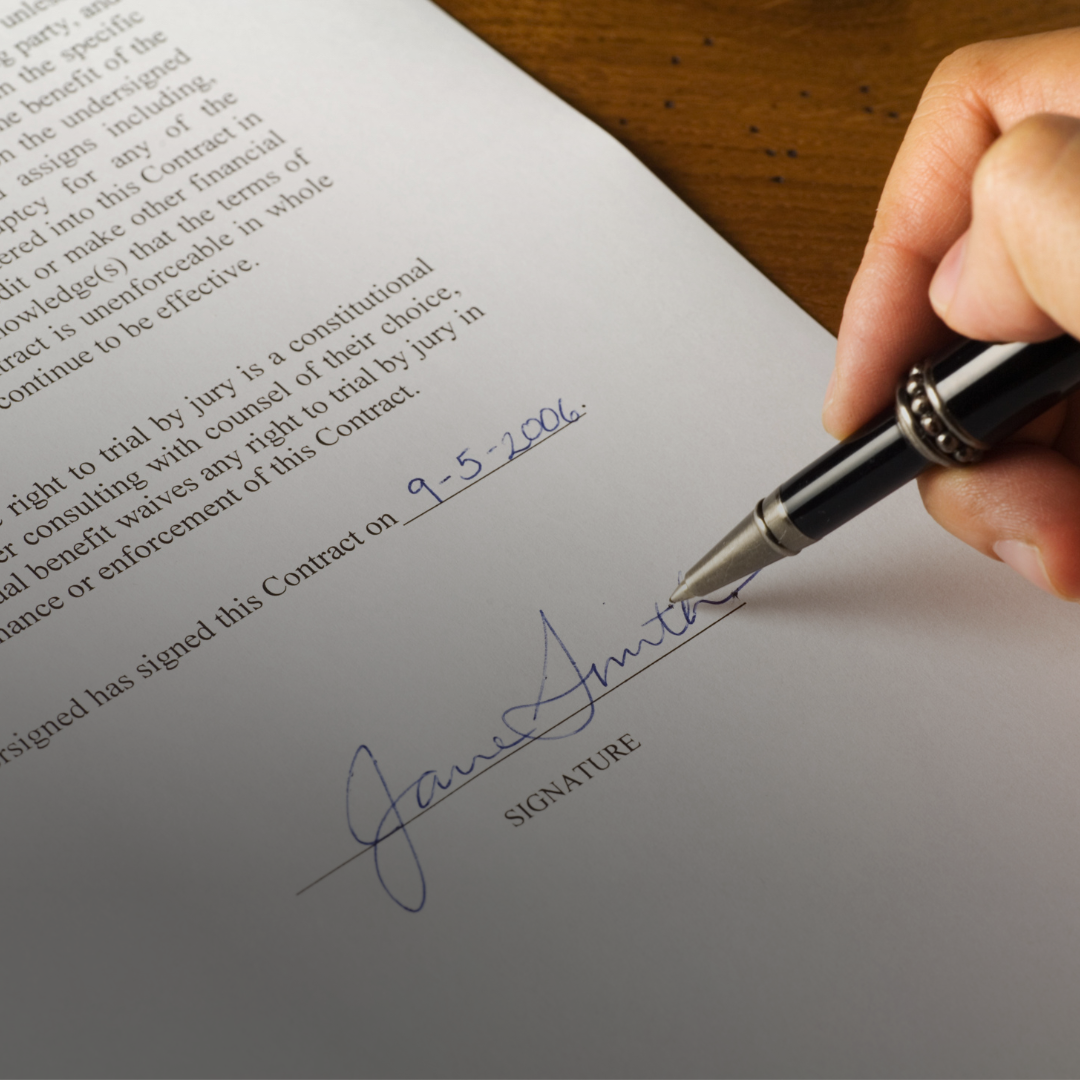 unless
g party, and
n the specific
he benefit of the
n the undersigned
assigns including,
ptcy for any of the
ered into this Contract in
dit or make other financial
nowledge(s) that the terms of
tract is unenforceable in whole
continue to be effective.
right to trial by jury is a constitutional
er consulting with counsel of their choice,
ual benefit waives any right to trial by jury in
nance or enforcement of this Contract.
rsigned has signed this Contract on 9-5-2006.
Jane Smith
SIGNATURE